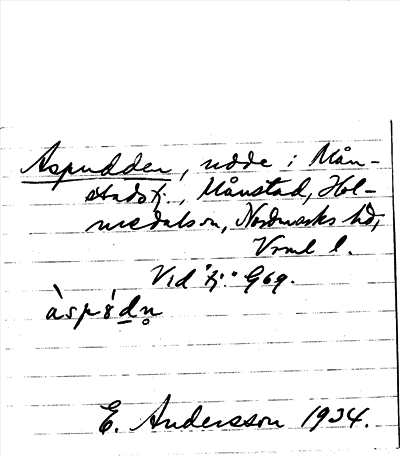 Aspudden, udde i Mån-
stadstj., Månstad, Hol-
medals sn, Nordmarks hd,
Vrml l.
Vid "tj." G69.
E. Andersson 1934.